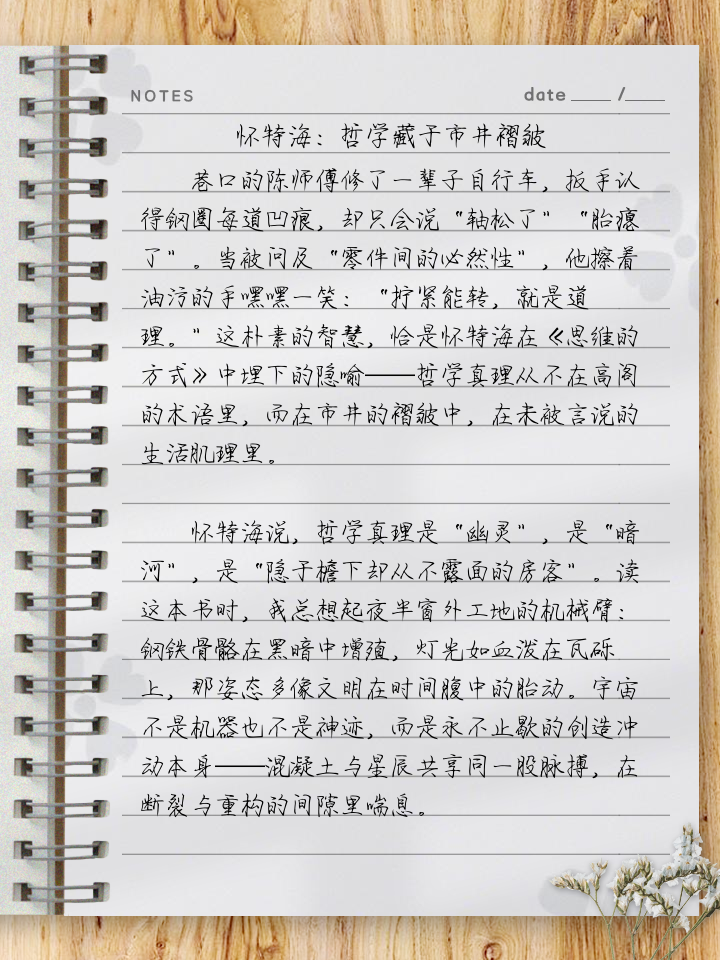 NOTES
date ____ /____
怀特海：哲学藏于市井褶皱
巷口的陈师傅修了一辈子自行车，扳手认
得钢圈每道凹痕，却只会说“轴松了”“胎瘪
了”。当被问及“零件间的必然性”，他擦着
油污的手嘿嘿一笑：“拧紧能转，就是道
理。”这朴素的智慧，恰是怀特海在《思维的
方式》中埋下的隐喻——哲学真理从不在高阁
的术语里，而在市井的褶皱中，在未被言说的
生活肌理里。
怀特海说，哲学真理是“幽灵”，是“暗
河”，是“隐于檐下却从不露面的房客”。读
这本书时，我总想起夜半窗外工地的机械臂：
钢铁骨骼在黑暗中增殖，灯光如血泼在瓦砾
上，那姿态多像文明在时间腹中的胎动。宇宙
不是机器也不是神迹，而是永不止歇的创造冲
动本身——混凝土与星辰共享同一股脉搏，在
断裂与重构的间隙里喘息。